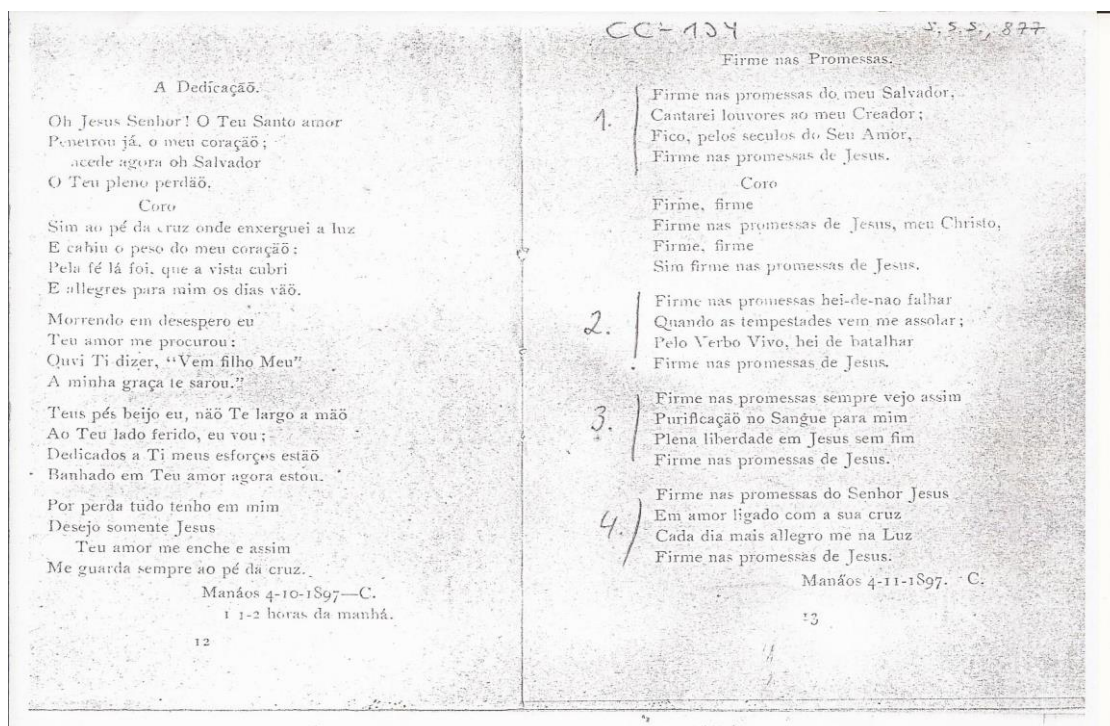 A Dedicação.
Oh Jesus Senhor! O Teu Santo amor
Penetrou já, o meu coração;
acede agora oh Salvador
O Teu pleno perdão.
Coro
Sim ao pé da cruz onde enxerguei a luz
E cahiu o peso do meu coração:
Pela fé lá foi, que a vista cubri
E allegres para mim os dias vão.
Morrendo em desespero eu
Teu amor me procurou:
Quvi Ti dizer, “Vem filho Meu”
A minha graça te sarou.”
Teus pés beijo eu, não Te largo a mão
Ao Teu lado ferido, eu vou;
Dedicados a Ti meus esforços estão
Banhado em Teu amor agora estou.
Por perda tudo tenho em mim
Desejo somente Jesus
Teu amor me enche e assim
Me guarda sempre ao pé da cruz.
Manáos 4-10-1897—C.
1 1-2 horas da manhá.
12
CC-134 S.S.S., 877
Firme nas Promessas.
1. Firme nas promessas do meu Salvador,
Cantarei louvores ao meu Creador;
Fico, pelos seculos do Seu Amor,
Firme nas promessas de Jesus.
Coro
Firme, firme
Firme nas promessas de Jesus, meu Christo,
Firme, firme
Sim firme nas promessas de Jesus.
2. Firme nas promessas hei-de-nao falhar
Quando as tempestades vem me assolar;
Pelo Verbo Vivo, hei de batalhar
Firme nas promessas de Jesus.
3. Firme nas promessas sempre vejo assim
Purificação no Sangue para mim
Plena liberdade em Jesus sem fim
Firme nas promessas de Jesus.
4. Firme nas promessas do Senhor Jesus
Em amor ligado com a sua cruz
Cada dia mais allegro me na Luz
Firme nas promessas de Jesus.
Manáos 4-11-1897. C.
13